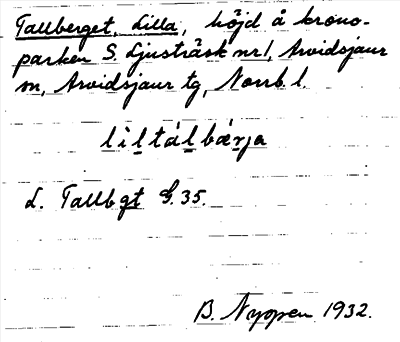 Tallberget, Lilla, höjd å krono-
parken S. Ljusträsk nr 1, Arvidsjaur
sn, Arvidsjaur tg, Norrb. l.
lìltálbærja
L. Tallbgt G. 35.
B. Nyman 1932.